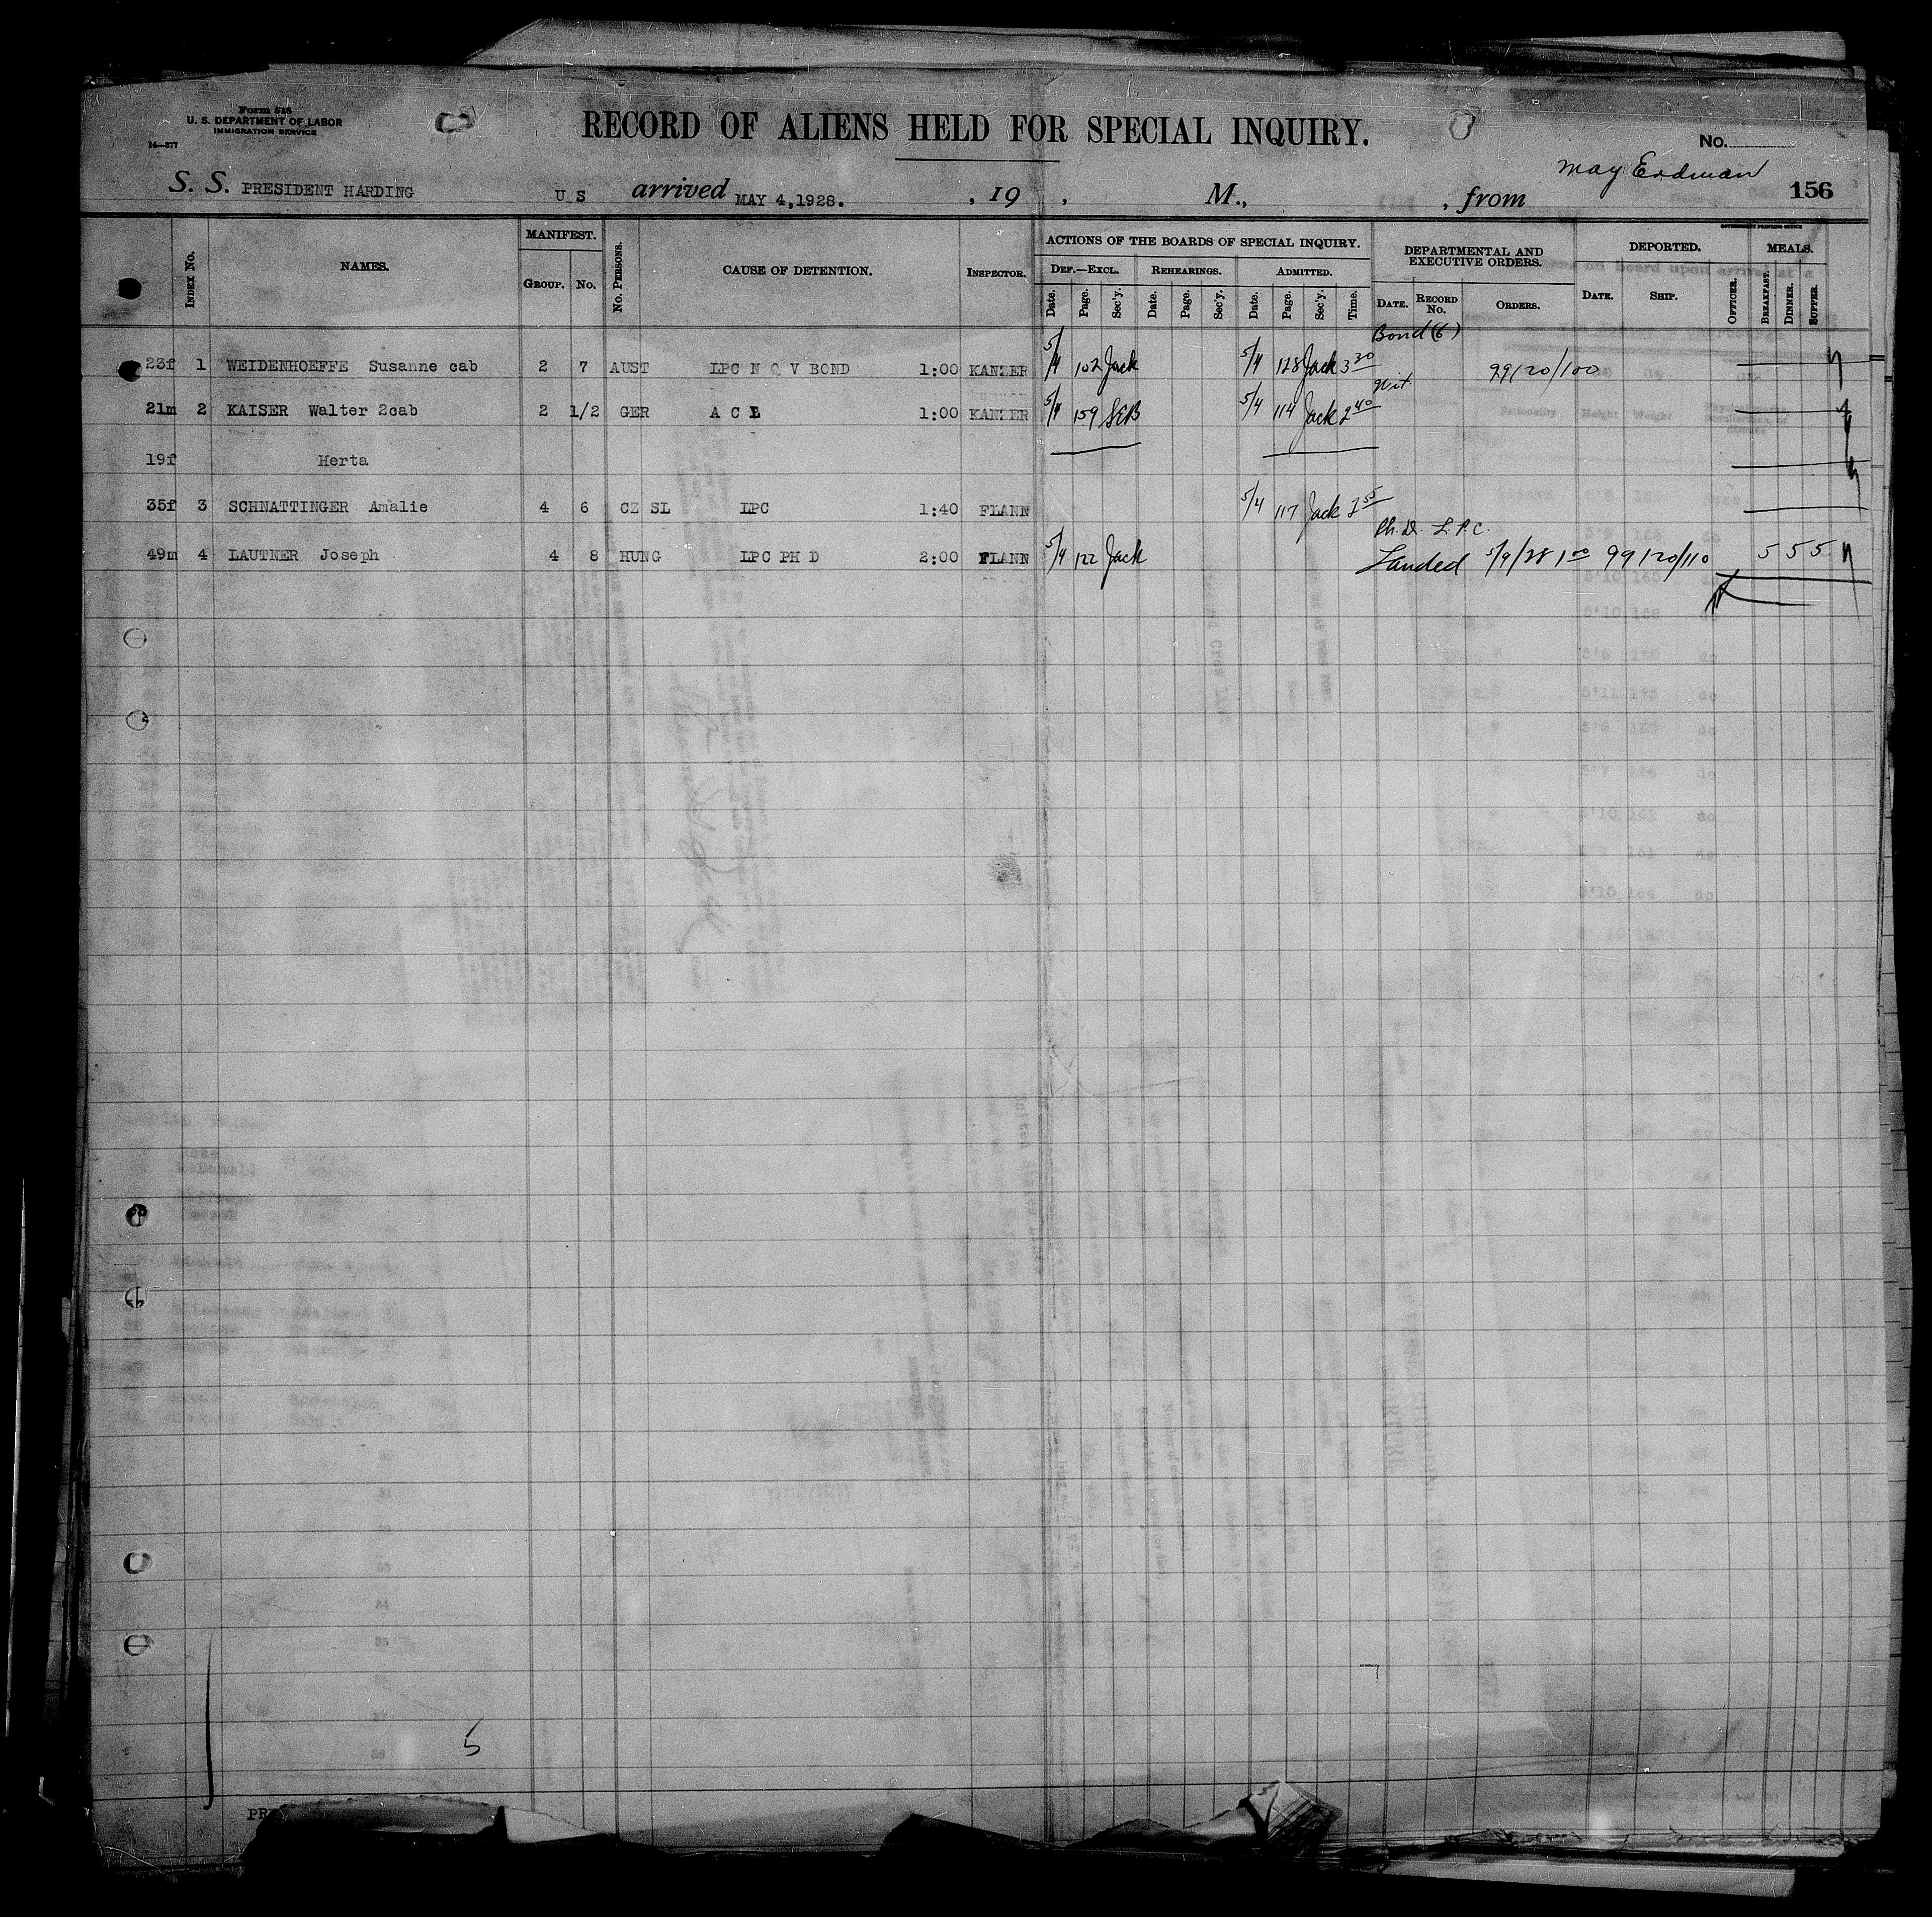 Form 518
U. S. DEPARTMENT OF LABOR
IMMIGRATION SERVICE
14—377
RECORD OF ALIENS HELD FOR SPECIAL INQUIRY.
No.
May Erdman
156
S. S. PRESIDENT HARDING U S arrived MAY 4,1928. , 19 , M., , from
GOVERNMENT PRINTING OFFICE
Index No. NAMES. MANIFEST. Group. No. No. Persons. CAUSE OF DETENTION. Inspector. ACTIONS OF THE BOARDS OF SPECIAL INQUIRY. Def.—Excl. Date. Page. Sec'y. Rehearings. Date. Page. Sec'y. Admitted. Date. Page. Sec'y. Time. DEPARTMENTAL AND EXECUTIVE ORDERS. Date. Record No. Orders. DEPORTED. Date. Ship. Officer. MEALS. Breakfast. Dinner. Supper.
Bond (6)
23f 1 WEIDENHOEFFE Susanne cab 2 7 AUST LPC N Q V BOND 1:00 KANZER 5/4 102 Jack 5/4 128 Jack 3 30 99120/100
Wit.
21m 2 KAISER Walter 2cab 2 1/2 GER A C L 1:00 KANZER 5/4 159 SEB 5/4 114 Jack 2 40
19f Herta
35f 3 SCHNATTINGER Amalie 4 6 CZ SL LPC 1:40 FLANN 5/4 117 Jack 2 55
Ph.D. L.P.C.
49m 4 LAUTNER Joseph 4 8 HUNG LPC PH D 2:00 FLANN 5/4 122 Jack Landed 5/9/28 1 00 99120/110 5 5 5
5